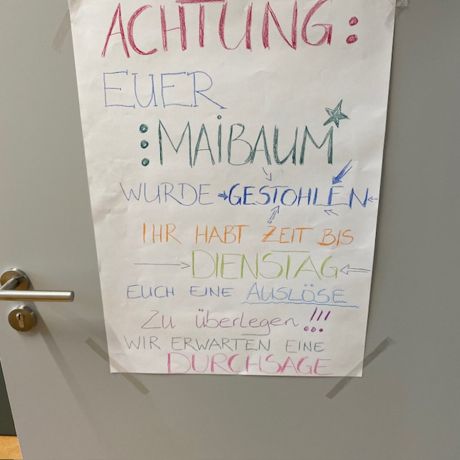 ACHTUNG:
EUER
MAIBAUM
WURDE GESTOHLEN
IHR HABT ZEIT BIS
DIENSTAG
EUCH EINE AUSLÖSE
Zu überlegen!!!
WIR ERWARTEN EINE
DURCHSAGE